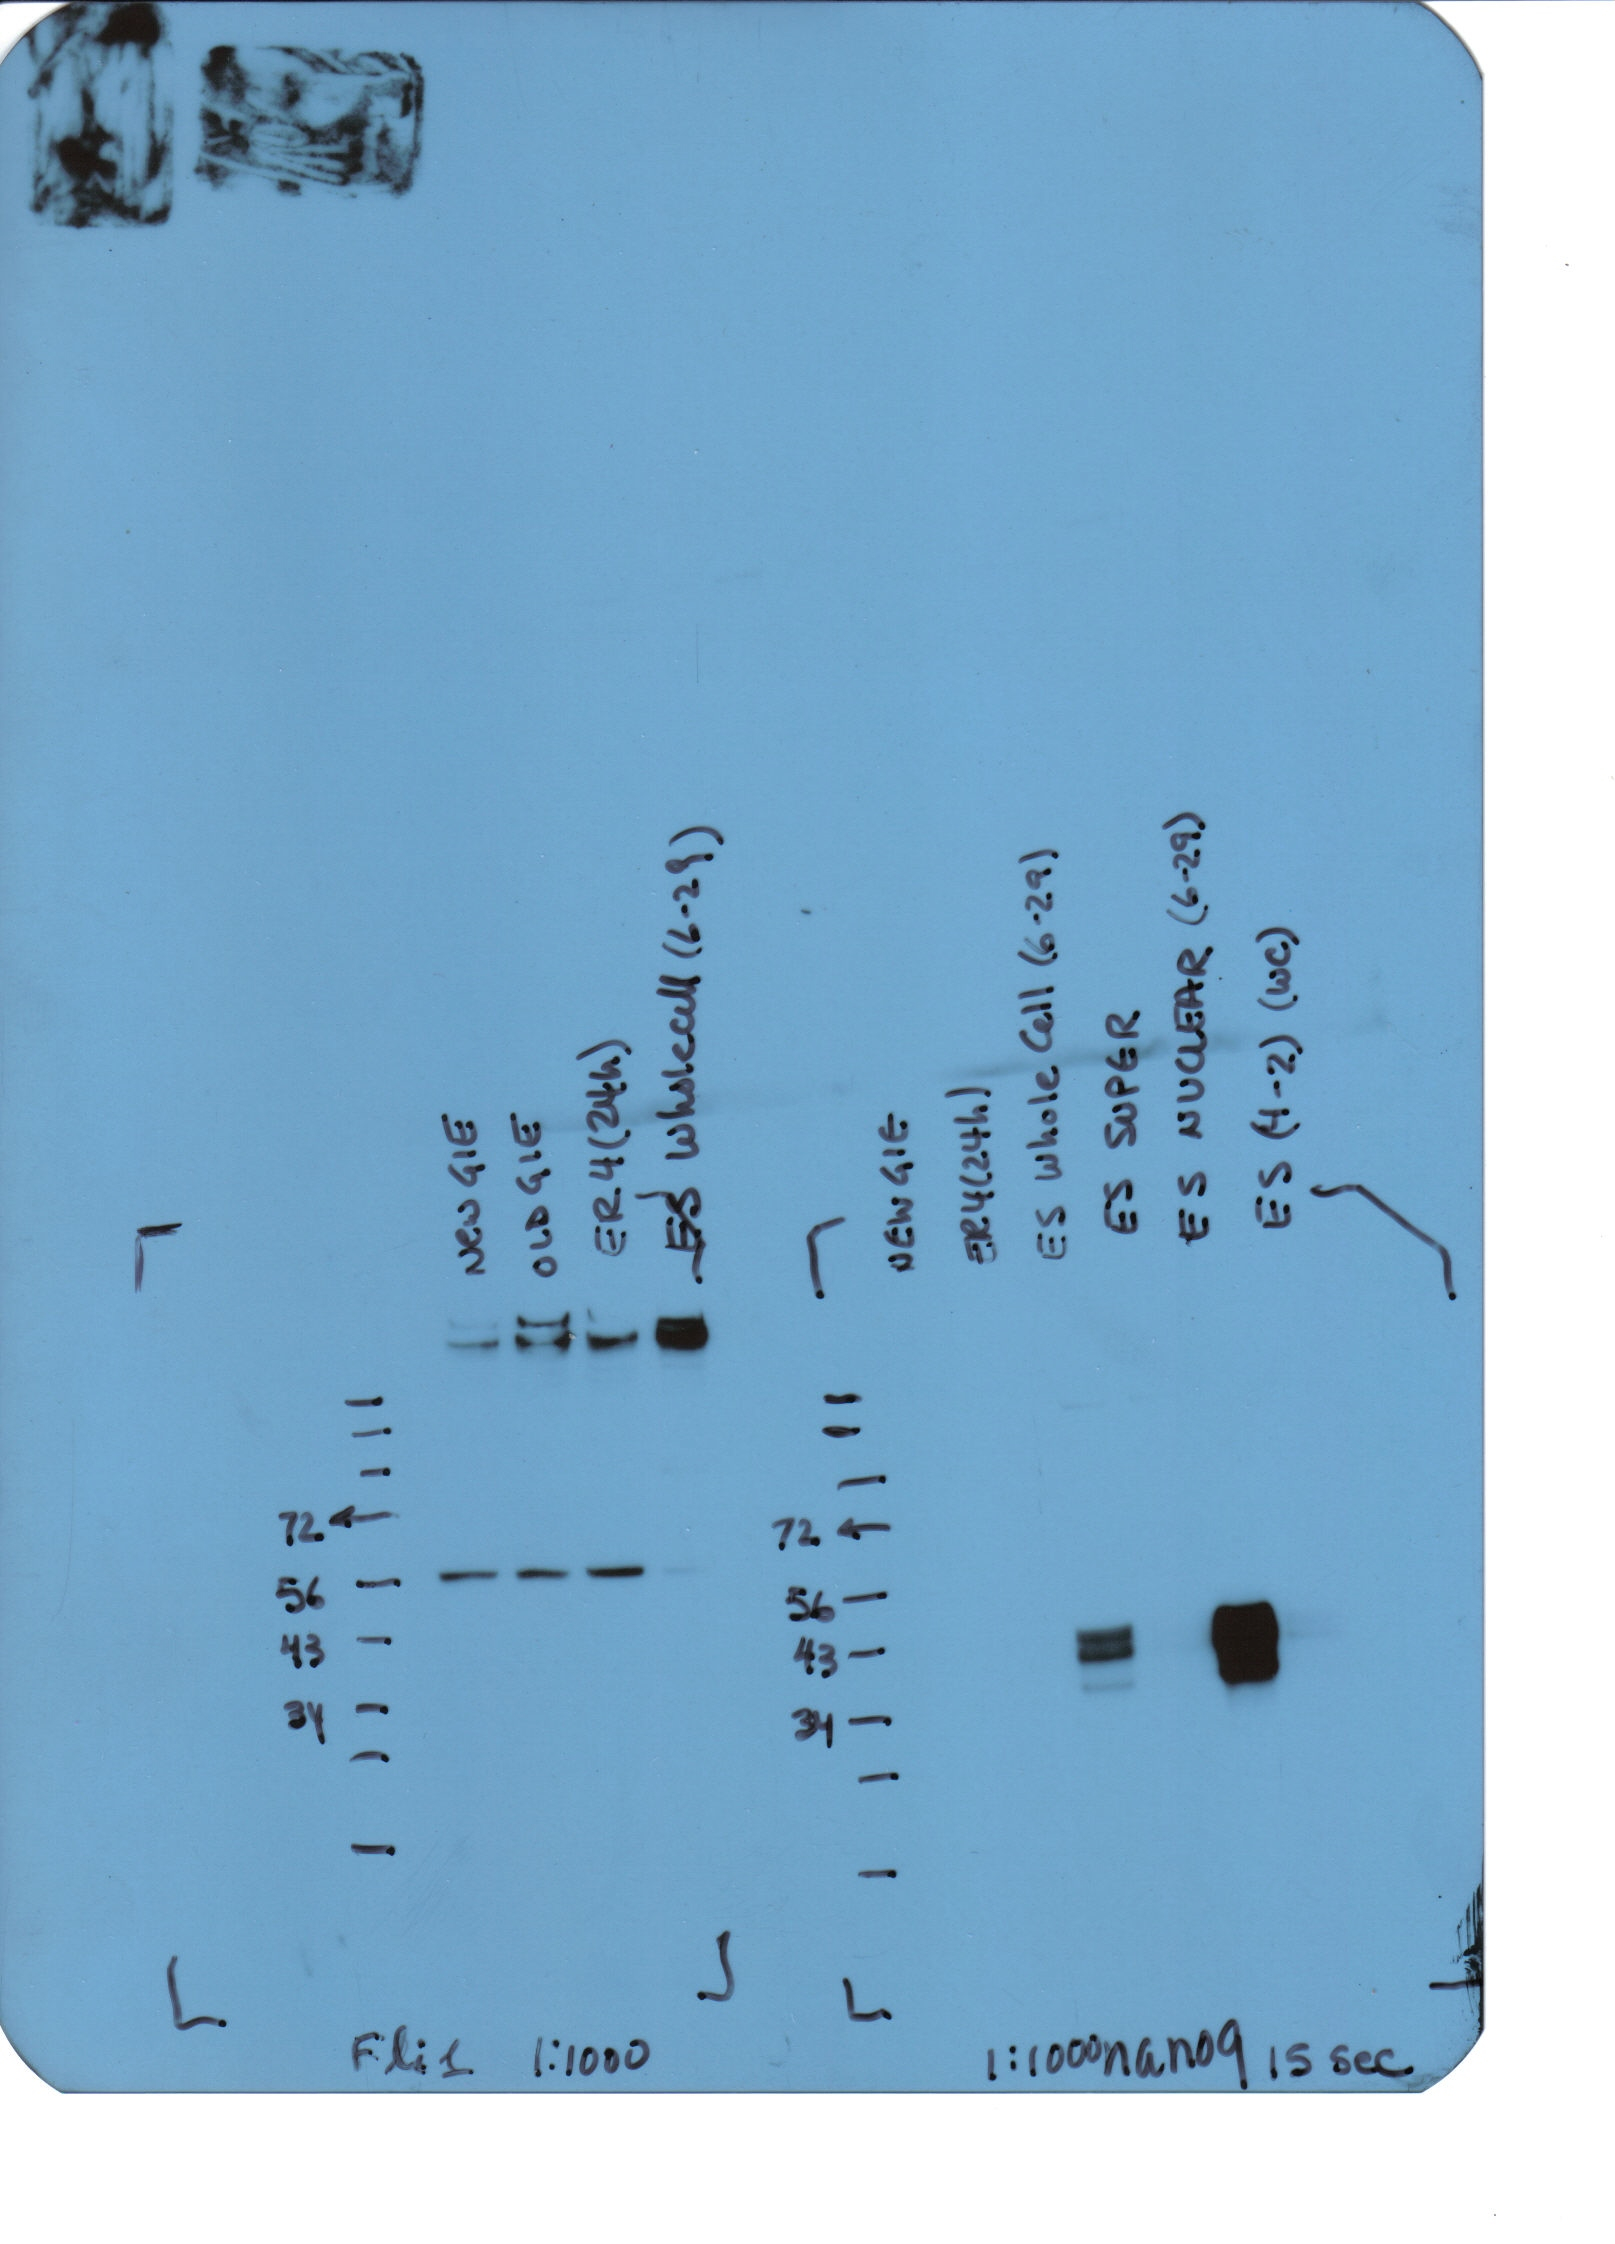 NEW G1E
OLD G1E
ER4 (24h)
ES Wholecell (6-29)
72
56
43
34
Fli1 1:1000
NEW G1E
ER4 (24h)
ES Whole Cell (6-29)
ES SUPER
ES NUCLEAR (6-29)
ES (4-2) (WC)
72
56
43
34
1:1000 nanog 15 sec